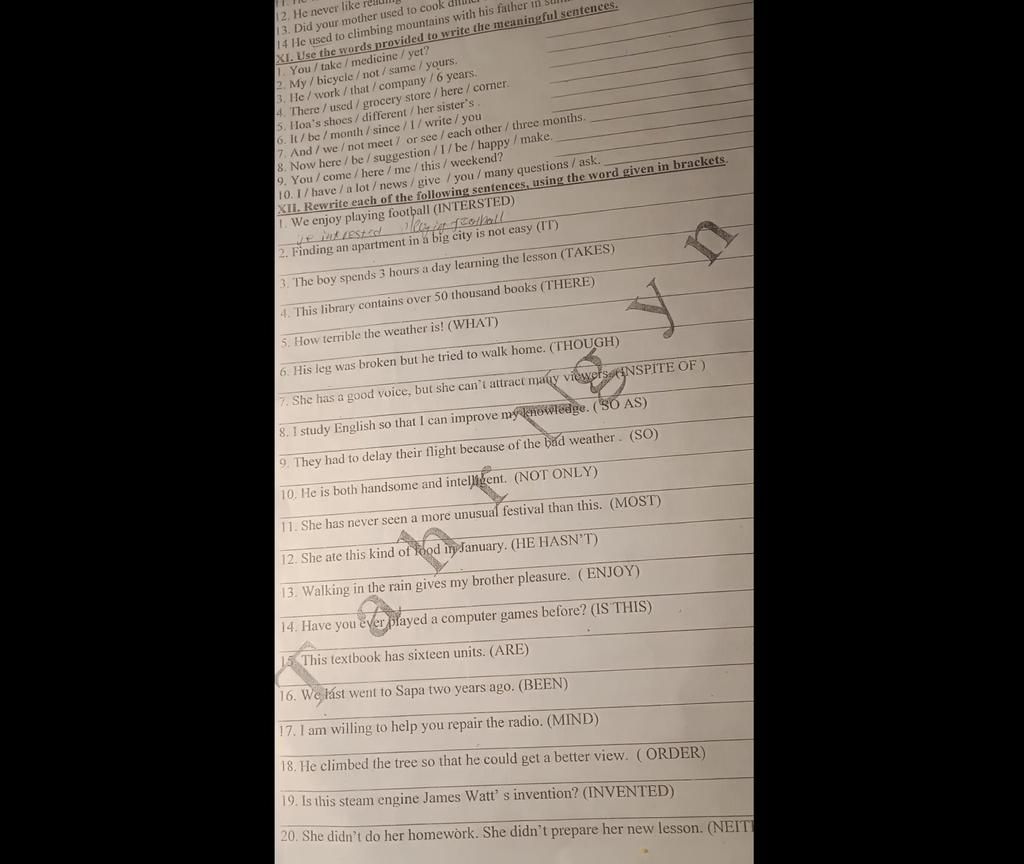 12. He never like reading
13. Did your mother used to cook dinner
14 He used to climbing mountains with his father in
XI. Use the words provided to write the meaningful sentences.
1. You / take / medicine / yet?
2. My / bicycle / not / same / yours.
3. He / work / that / company / 6 years.
4. There / used / grocery store / here / corner.
5. Hoa's shoes / different / her sister's .
6. It / be / month / since / I / write / you
7. And / we / not meet / or see / each other / three months.
8. Now here / be / suggestion / I / be / happy / make.
9. You / come / here / me / this / weekend?
10. I / have / a lot / news / give / you / many questions / ask.
XII. Rewrite each of the following sentences, using the word given in brackets.
1. We enjoy playing football (INTERSTED)
football
2. Finding an apartment in a big city is not easy (IT)
3. The boy spends 3 hours a day learning the lesson (TAKES)
4. This library contains over 50 thousand books (THERE)
5. How terrible the weather is! (WHAT)
6. His leg was broken but he tried to walk home. (THOUGH)
7. She has a good voice, but she can't attract many viewers. (INSPITE OF )
8. I study English so that I can improve my knowledge. ( SO AS)
9. They had to delay their flight because of the bad weather . (SO)
10. He is both handsome and intelligent. (NOT ONLY)
11. She has never seen a more unusual festival than this. (MOST)
12. She ate this kind of food in January. (HE HASN'T)
13. Walking in the rain gives my brother pleasure. ( ENJOY)
14. Have you ever played a computer games before? (IS THIS)
15. This textbook has sixteen units. (ARE)
16. We last went to Sapa two years ago. (BEEN)
17. I am willing to help you repair the radio. (MIND)
18. He climbed the tree so that he could get a better view. ( ORDER)
19. Is this steam engine James Watt' s invention? (INVENTED)
20. She didn't do her homework. She didn't prepare her new lesson. (NEIT